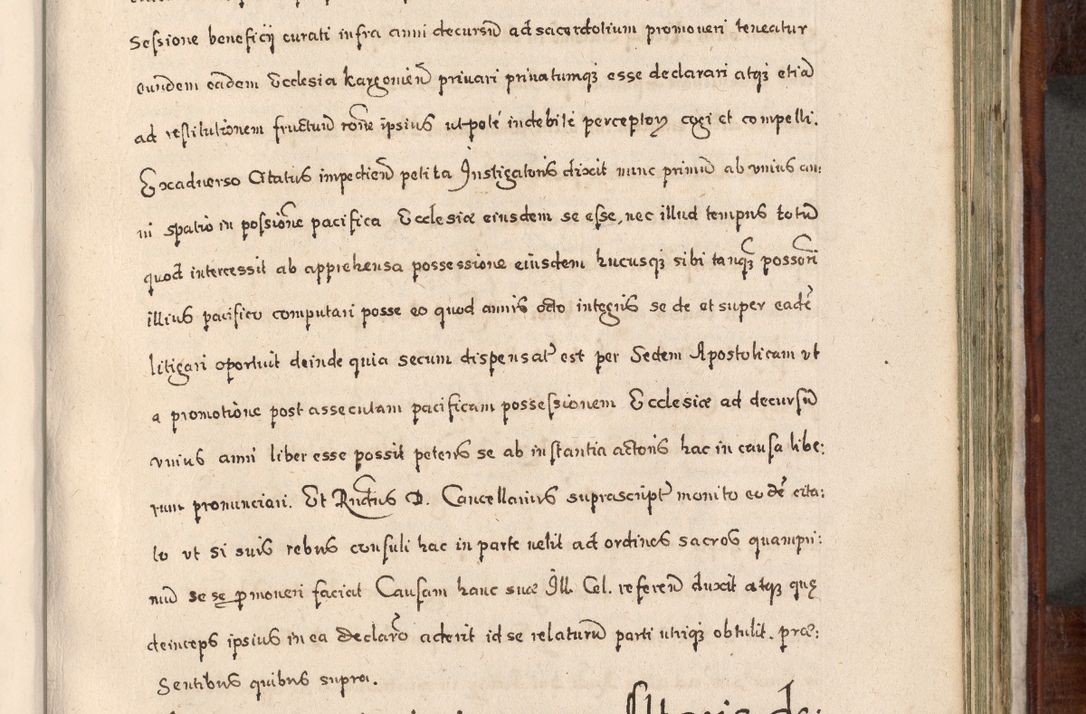 Sessione beneficij curati infra anni decursū ad sacerdotium promoveri teneatur
eundem eadem Ecclesia kargonień privari privatumq; esse declarari atq; etiā
ad restitutionem fructuū rōne ipsius utpote indebite perceptoʒ cogi et compelli.
Exadverso Citatus impedień petita Instigatoris dixit nunc primū ab unius an:
ni spatio in possiōne pacifica Ecclesiæ eiusdem se esse, nec illud tempus totū
quod intercessit ab apprehensa possessione eiusdem hucusq; sibi tanq̃ possōri
illius pacifico computari posse eo quod annis octo integris se de et super eadē
litigari oportuit deinde quia secum dispensat̃ est per Sedem Apostolicam ut
a promotione post assecutam pacificam possessionem Ecclesiæ ad decursū
unius anni liber esse possit petens se ab instantia actoris hac in causa libe:
rum pronunciari. Et Rn̄dus D. Cancellarius suprascript̃ monito eodē cita:
to ut si suis rebus consuli hac in parte velit ad ordines sacros quampri:
mū se se pmoveri faciat Causam hanc suæ Ill. Cel. referen̄ duxit atq; quę
deinceps ipsius in ea declarō aderit id se relaturū parti utriq; obtulit. præ:
Sentibus quibus supra.